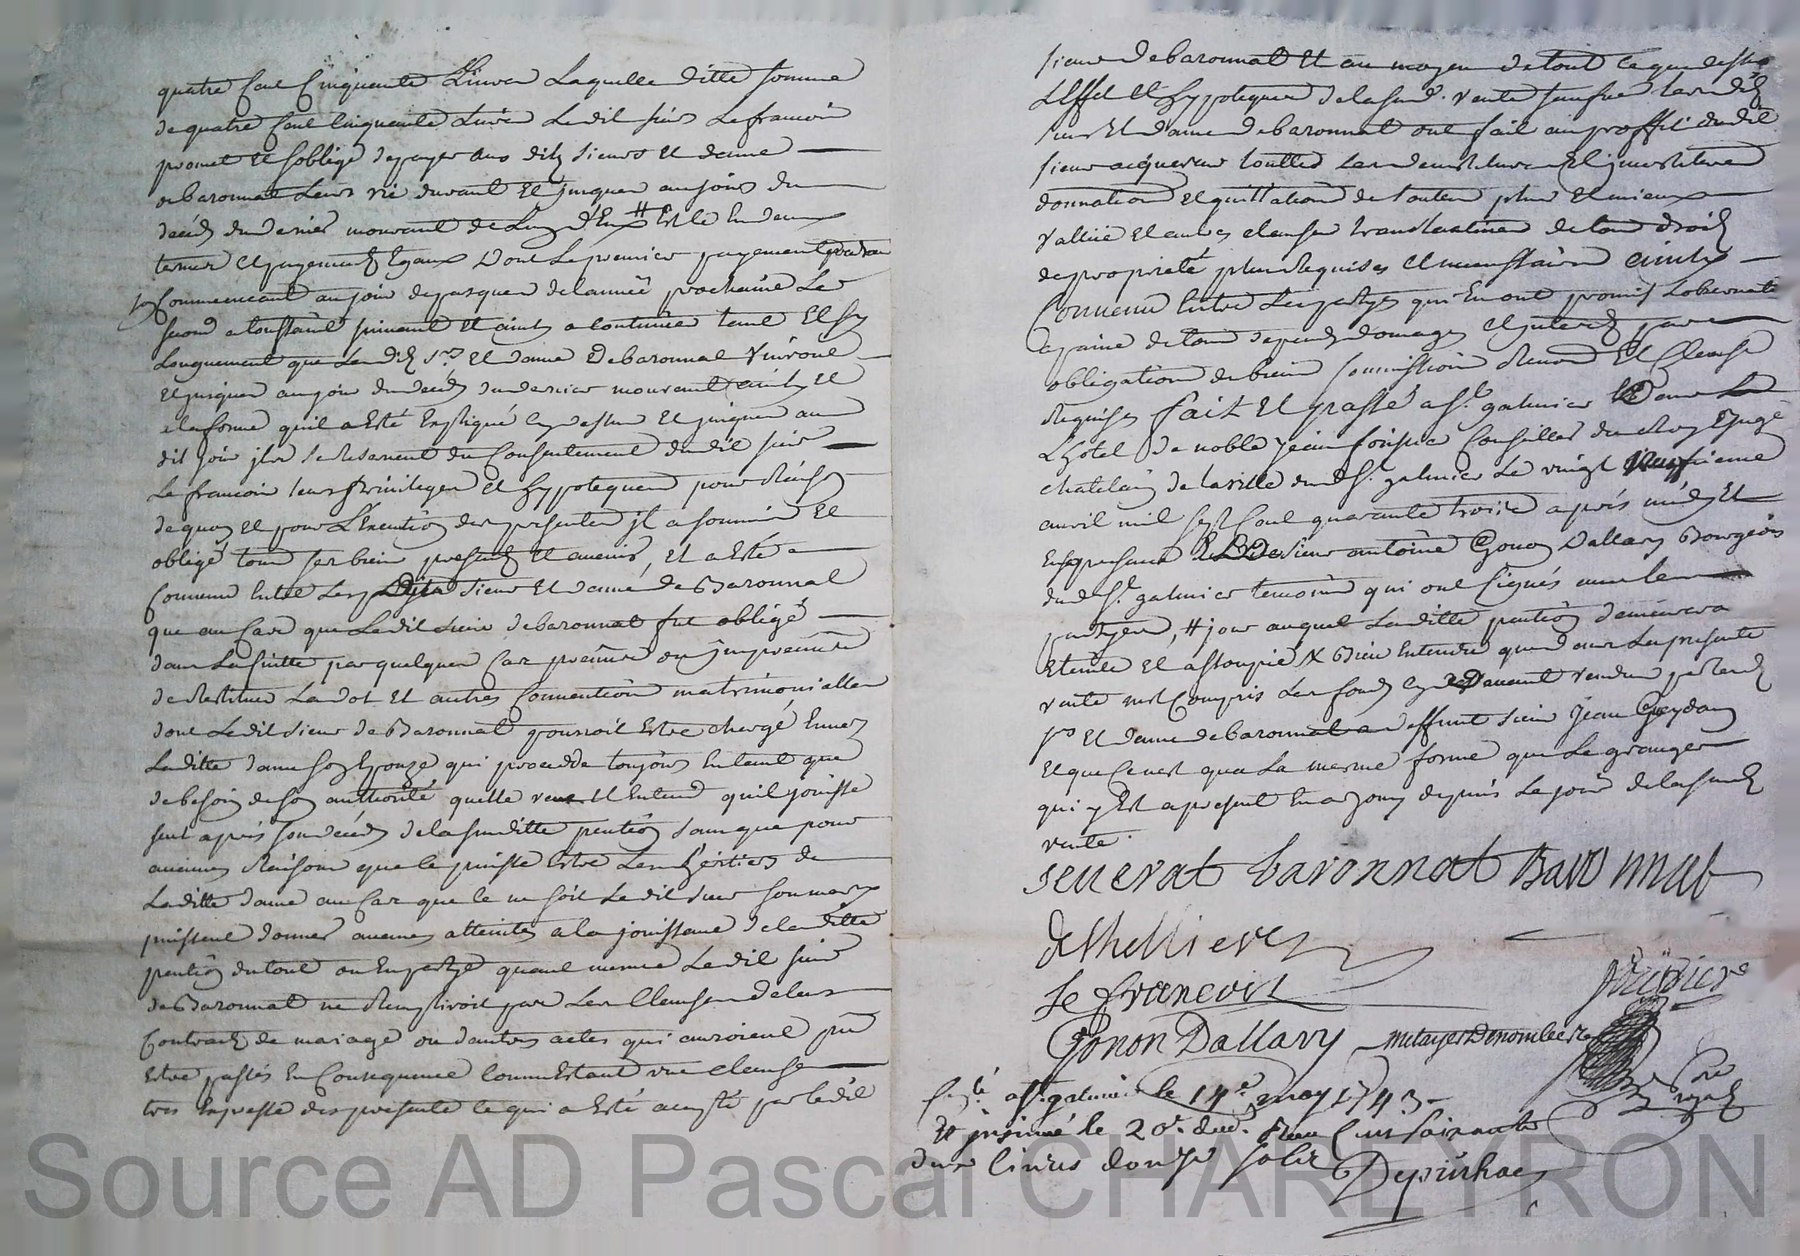 quatre cent cinquante Livres Laquelle ditte somme
de quatre cent cinquante Livres Ledit sieur Lefrancois
promet et soblige de payer aus dits sieurs et dame
de baronnat Leurs vie durant et jusques au jour du
decés du dernier mourant de # en deux
termes et payements Egaux dont Le premier payement
commencant au jour de pasques de lannée prochaine Le
second a toussaint suivant et ainsy a continuer tant et sy
Longuement que Lesdits Srs et dame de baronnat vivront
et jusques au jour du deces du dernier mourant ainsy et
a la forme quil a esté Expliqué cy dessus et jusques au
dit jour ils se reservent du consentement dudit sieur
Le francois leurs privileges et hypoteques pour raison
de quoy et pour L'Execution des presentes il a soumis et
obligé tous ses biens presents et avenirs, et a esté
convenu Entre Les sieur et dame de Baronnat
que au cas que Ledit sieur de baronnat fut obligé
dans La suitte par quelques cas preveus ou impreveus
de restituer La dot et autres conventions matrimonialles
dont Ledit sieur de Baronnat pourroit Estre chargé Envers
Laditte dame son Epouze qui procedde toujours En tant que
de besoin de son authorité quelle veut et Entend quil jouisse
seul après son decés de la susditte pention sans que pour
aucunes raisons que ce puisse Estre Les heritiers de
Laditte dame au cas que ce ne soit Ledit sieur son mary
puissent donner aucunes atteintes a la jouissance de laditte
pention du tout ou En partye quand mesme Ledit sieur
de Baronnat ne rempliroit pas Les Clauses de leur
Contract de mariage ou dautres actes qui auroient pu
Estre passés En Consequence comme Estant une clause
tres Expresse des presentes ce qui a Esté accepté par ledit
sieur de baronnat Et au moyen de tout ce que dessus
L'Effet et hypoteques de la susd. vente
sieur Et dame de baronnat ont fait au proffit dudit
sieur acquereur touttes Les demistures et investitures
donnation et quittation de toutes plus et mieux
vallüe et autres clauses translatives de tous droits
de proprieté plus requises et necessaires ainsy
convenu Entre Les partyes qui En ont promis Lobservation
a paine de tous depens domages et interets par
obligation de biens soumission renon. Et Clauses
requises fait et passé a St. galmier dans
L'hotel de noble jean Conseiller du Roy Juge
chatelain de la ville dud St. galmier Le vingt neuffieme
avril mil sept cent quarante trois après midy Et
En presence de sieur antoine Gonon Dallary Bourgeois
dud St. galmier temoins qui ont signés avec les
partyes, # jour auquel Laditte pention demeurera
Eteinte Et assoupie Bien Entendu que dans La presente
vente nest compris Les fonds cy devant vendus par lesd
Srs Et dame de baronnat a deffunt sieur Jean Geydan
Et que Cenest qua La mesme forme que Le granger
qui y Est a present En a jouy depuis Le jour de la susd
vente.
seuerat baronnat Baronnat
dethellieres
le francois
Gonon Dallary
Cte. a St. galmier le 14e. may 1743
et insinué le 20e. dud.
deux livres douze solz